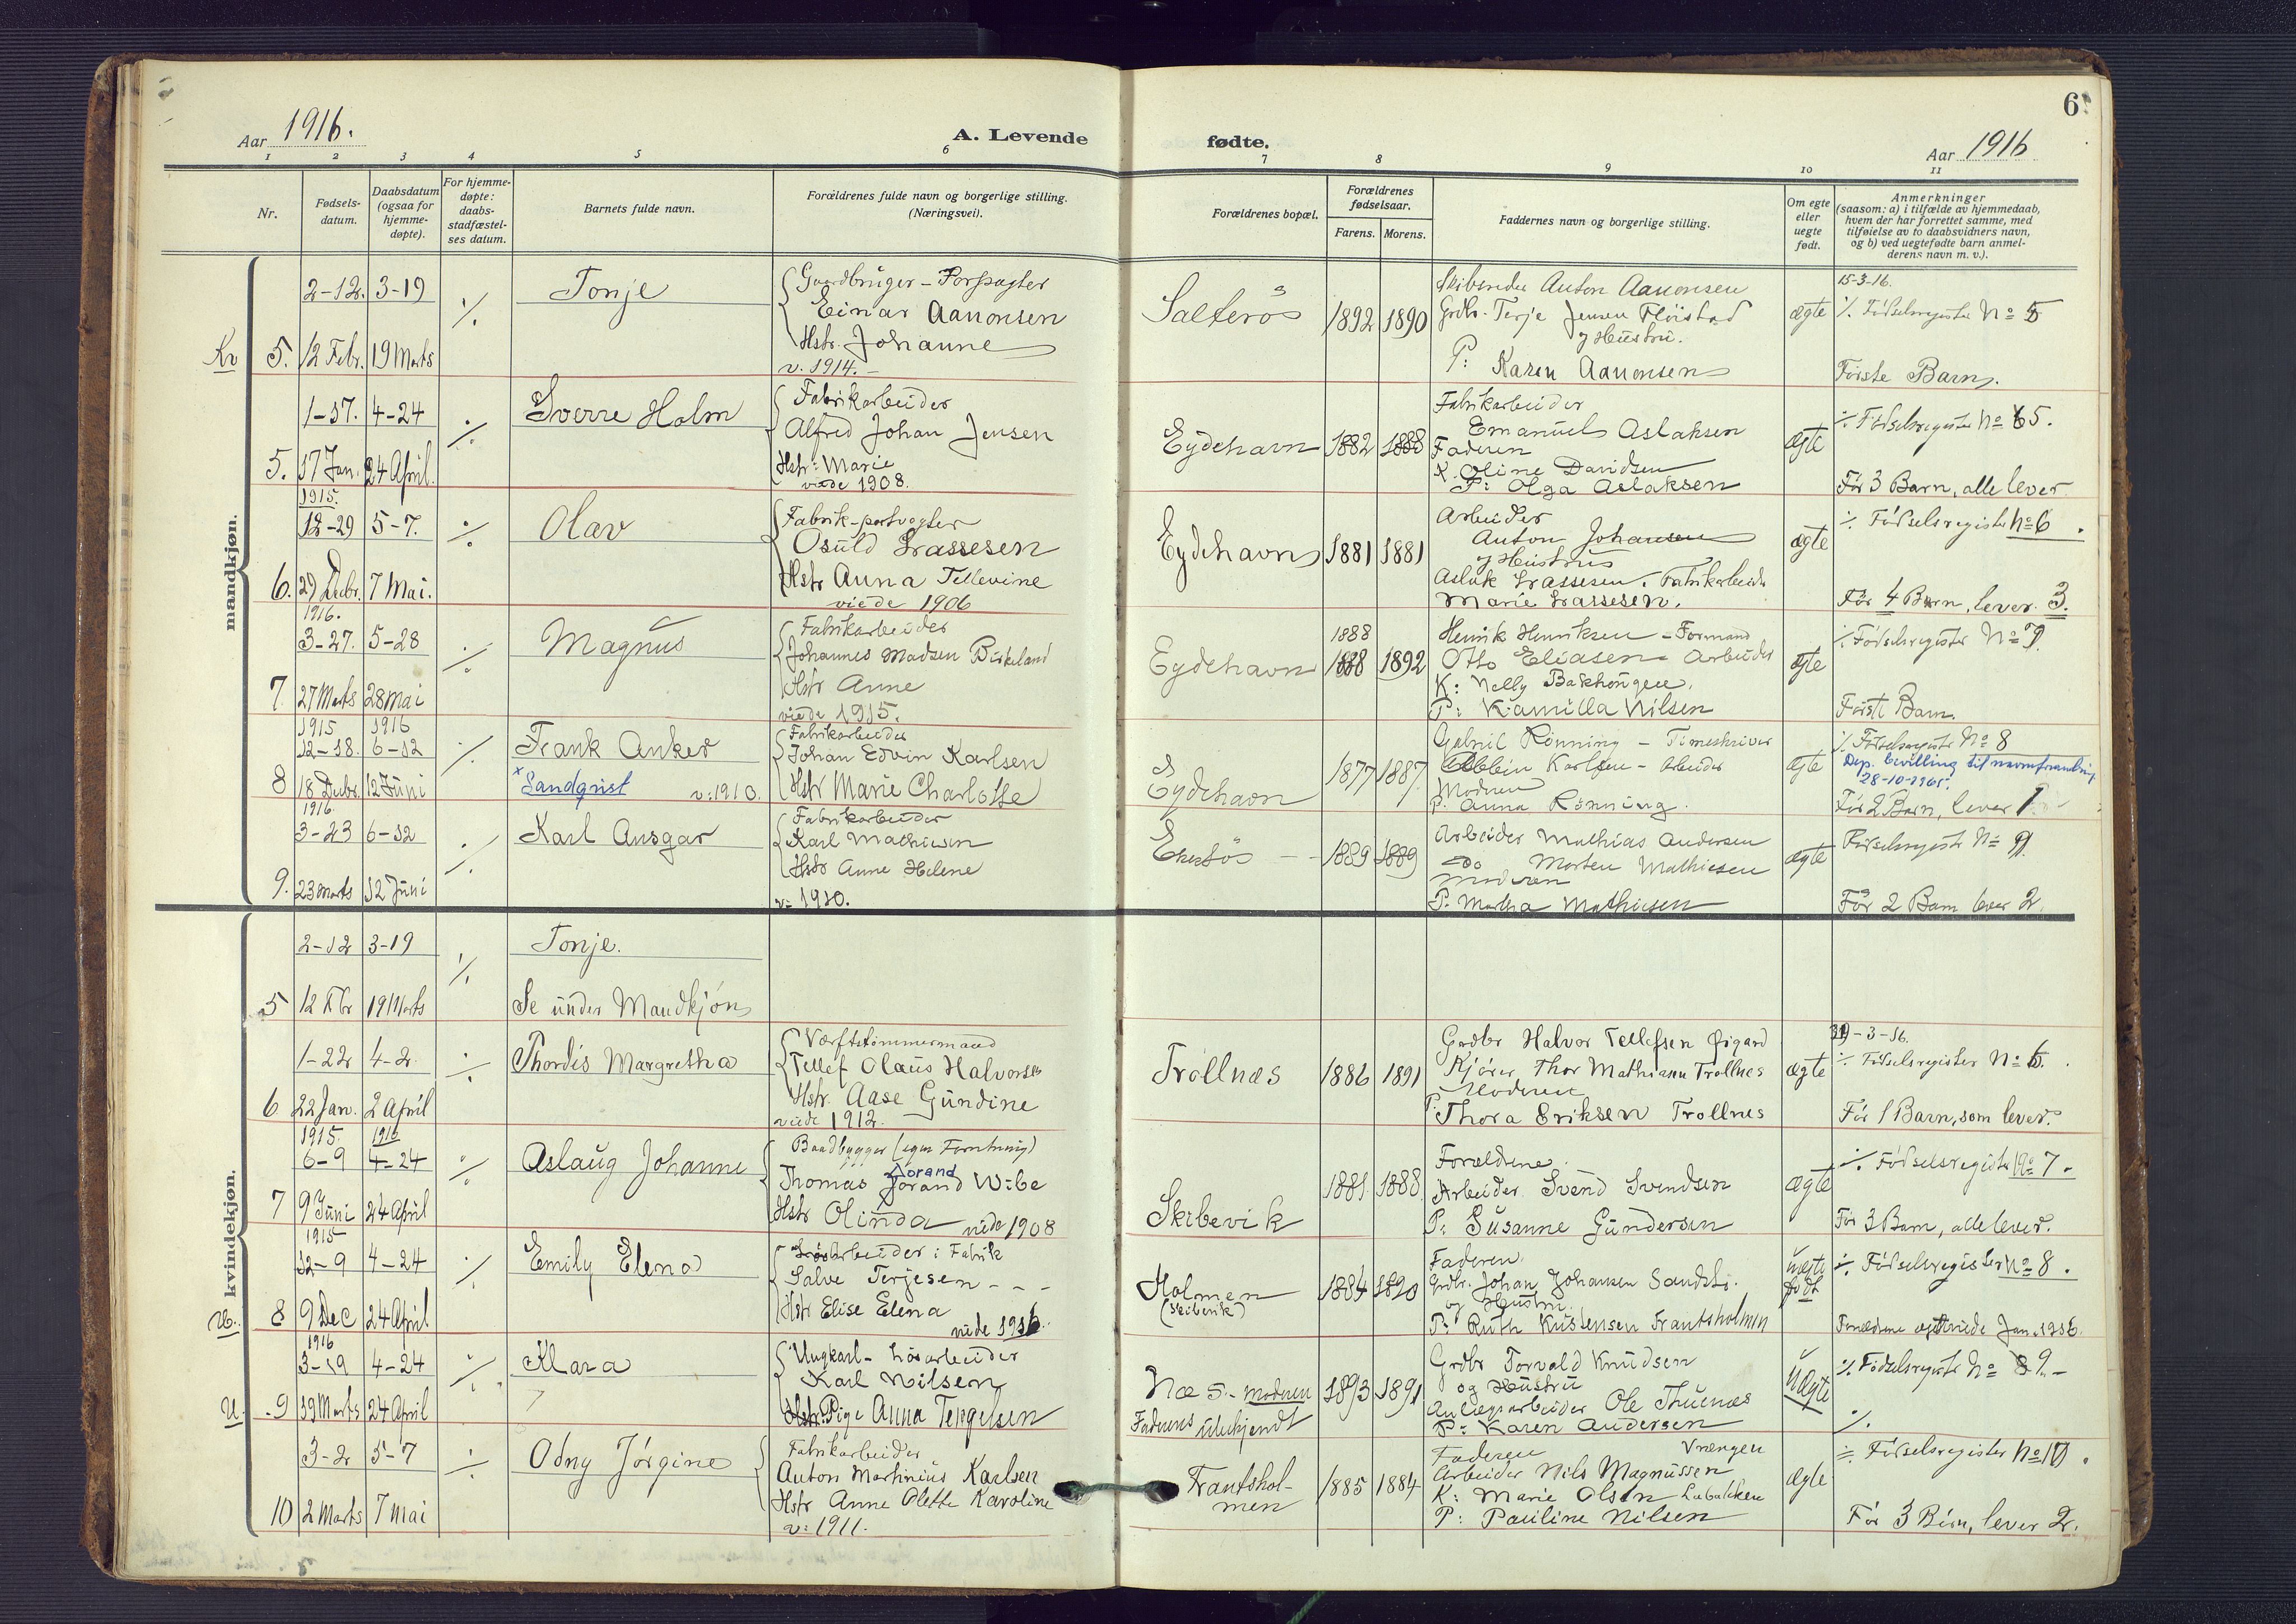 6
Aar 1916.
A. Levende fødte.
Aar 1916
1 2 3 4 5 6 7 8 9 10 11
Nr.
Fødsels-
datum.
Daabsdatum
(ogsaa for
hjemme-
døpte).
For hjemme-
døpte:
daabs-
stadfæstel-
ses datum.
Barnets fulde navn.
Forældrenes fulde navn og borgerlige stilling.
(Næringsvei).
Forældrenes bopæl.
Forældrenes
fødselsaar.
Farens. Morens.
Faddernes navn og borgerlige stilling.
Om egte
eller
uegte
født.
Anmerkninger
(saasom: a) i tilfælde av hjemmedaab,
hvem der har forrettet samme, med
tilføielse av to daabsvidners navn,
og b) ved uegtefødte barn anmel-
derens navn m. v.).
mandkjøn.
Kv 5.
2-12. 3-19
12 Febr. 19 Marts
Tonje
Gaardbruger - Forpagter
Einar Aanonsen
Hstr. Johanne
v. 1914.-
Salterös
1892 1890
Anton Aanonsen
Grdbr. Terje Jensen Flöistad
og Hüstrü.
P: Karen Aanonsen
ægte
15-3-16.
Födselsregister No 5
Förste Barn.
5.
1-17. 4-24
17 Jan. 24 April.
Sverre Holm
Fabrikarbeider
Alfred Johan Jensen
Hstr: Marie
viede 1908.
Eydehavn
1882 1888
Fabrikarbeider
Emanuel Aslaksen
Faderen
K. Oline Davidsen
P: Olga Aslaksen
ægte
Födselsregister No 5.
För 3 Barn, alle lever
6.
1915.
12-29 5-7.
29 Decbr. 7 Mai.
Olav
Fabrik-portvogter
Osüld Lassesen
Hstr Anna Tellevine
viede 1906
Eydehavn
1881 1881
Arbeider
Anton Johansen
og Hüstrü
Aslak Lassesen. Fabrikarbeider
Marie Lassesen.
ægte
Födselsregister No 6.
För 4 Barn, lever 3.
7.
1916.
3-27. 5-28
27 Marts 28 Mai
Magnüs
Fabrikarbeider
Johannes Madsen Birkeland
Hstr Anne
viede 1915.
Eydehavn
1888
1888 1892
Henrik Henriksen - Formand
Otto Eliasen - Arbeider
K: Nelly
P: Kamilla Nilsen
ægte
Födselsregister No 7.
Förste Barn.
8
1915 1916
12-18. 6-12
18 Decbr. 12 Jüni
Frank Anker
* Sandqvist
v: 1910.
Fabrikarbeider
Johan Edvin Karlsen
Hstr Marie Charlotte
Eydehavn
1877 1887
Gabriel Rönning - Timeskriver
Karlsen - Arbeider
Moderen
P: Anna Rönning.
ægte
Födselsregister No 8
Dep. bevilling til navneforandring
28-10-1965.
För 2 Barn, lever 1
9.
1916
3-23 6-12
23 Marts 12 Jüni
Karl Ansgar
Fabrikarbeider
Karl Mathiesen
Hstr Anne Helene
v: 1910.
1889 1889
Arbeider Mathias Andersen
do Morten Mathiesen
Moderen
P: Martha Mathiesen
ægte
Födselsregister No 9.
För 2 Barn lever 2.
kvindekjøn.
5
2-12 3-19
12 Fbr 19 Marts
Tonje.
Se ünder Mandkjön
6
1-22 4-2.
22 Jan. 2 April
Thordis Margretha
Værftstömmermand
Tellef Olaüs Halvorsen
Hstr. Aase Gündine
viede 1912.
Trollnæs
1886 1891
Grdbr Halvor Tellefsen
Thor Mathisen Trollnes
Moderen
P: Thora Eriksen Trollnes
ægte
-3-16.
Födselsregister No 6.
För 1 Barn, som lever.
7
1915. 1916
6-9 4-24
9 Jüni 24 April
Aslaüg Johanne
Baadbygger (egen Forretning)
Jorand
Thomas Jorand Wibe
Hstr Olinda viede 1908
Skibevik
1881 1888
Forældrene.
Arbeider. Svend Svendsen
P: Süsanne Gündersen
ægte
Födselsregister No 7.
För 3 Barn, alle lever.
U. 8
1915
12-9 4-24
9 Dec 24 April
Emily Elena
Lösarbeider i Fabrik
Salve Terjesen - - -
Hstr Elise Elena
viede 1916.
Holmen
(Skibevik)
1884 1890
Faderen.
Grdbr. Johan Johansen
og Hüstrü.
P: Ruth Kristensen Frantsholmen
üægte
födt
Födselsregister No 8.
Forældrene viede Jan. 1916.
U. 9
1916
3-19 4-24
19 Marts 24 April
Klara
Ungkarl - Lösarbeider
Karl Nilsen
Hstr. Pige Anna Tengelsen
Næs - Moderen
Faderens übekjendt
1893 1891
Grdbr Torvald Knüdsen
og Hüstrü
Anlægsarbeider Ole Thuenæs
P: Karen Andersen
üægte
Födselsregister No 9.-
10
3-2 5-7
2 Marts 7 Mai
Odny Jörgine
Fabrikarbeider
Anton Martiniüs Karlsen
Hstr Anne Olette Karoline
v: 1911.
Frantshol-
men
1885 1884
Faderen Vrængen
Arbeider Nils Magnüssen
K: Marie Olsen Labakken
P: Paüline Nilsen
ægte
Födselsregister No 10.
För 3 Börn, lever 2.